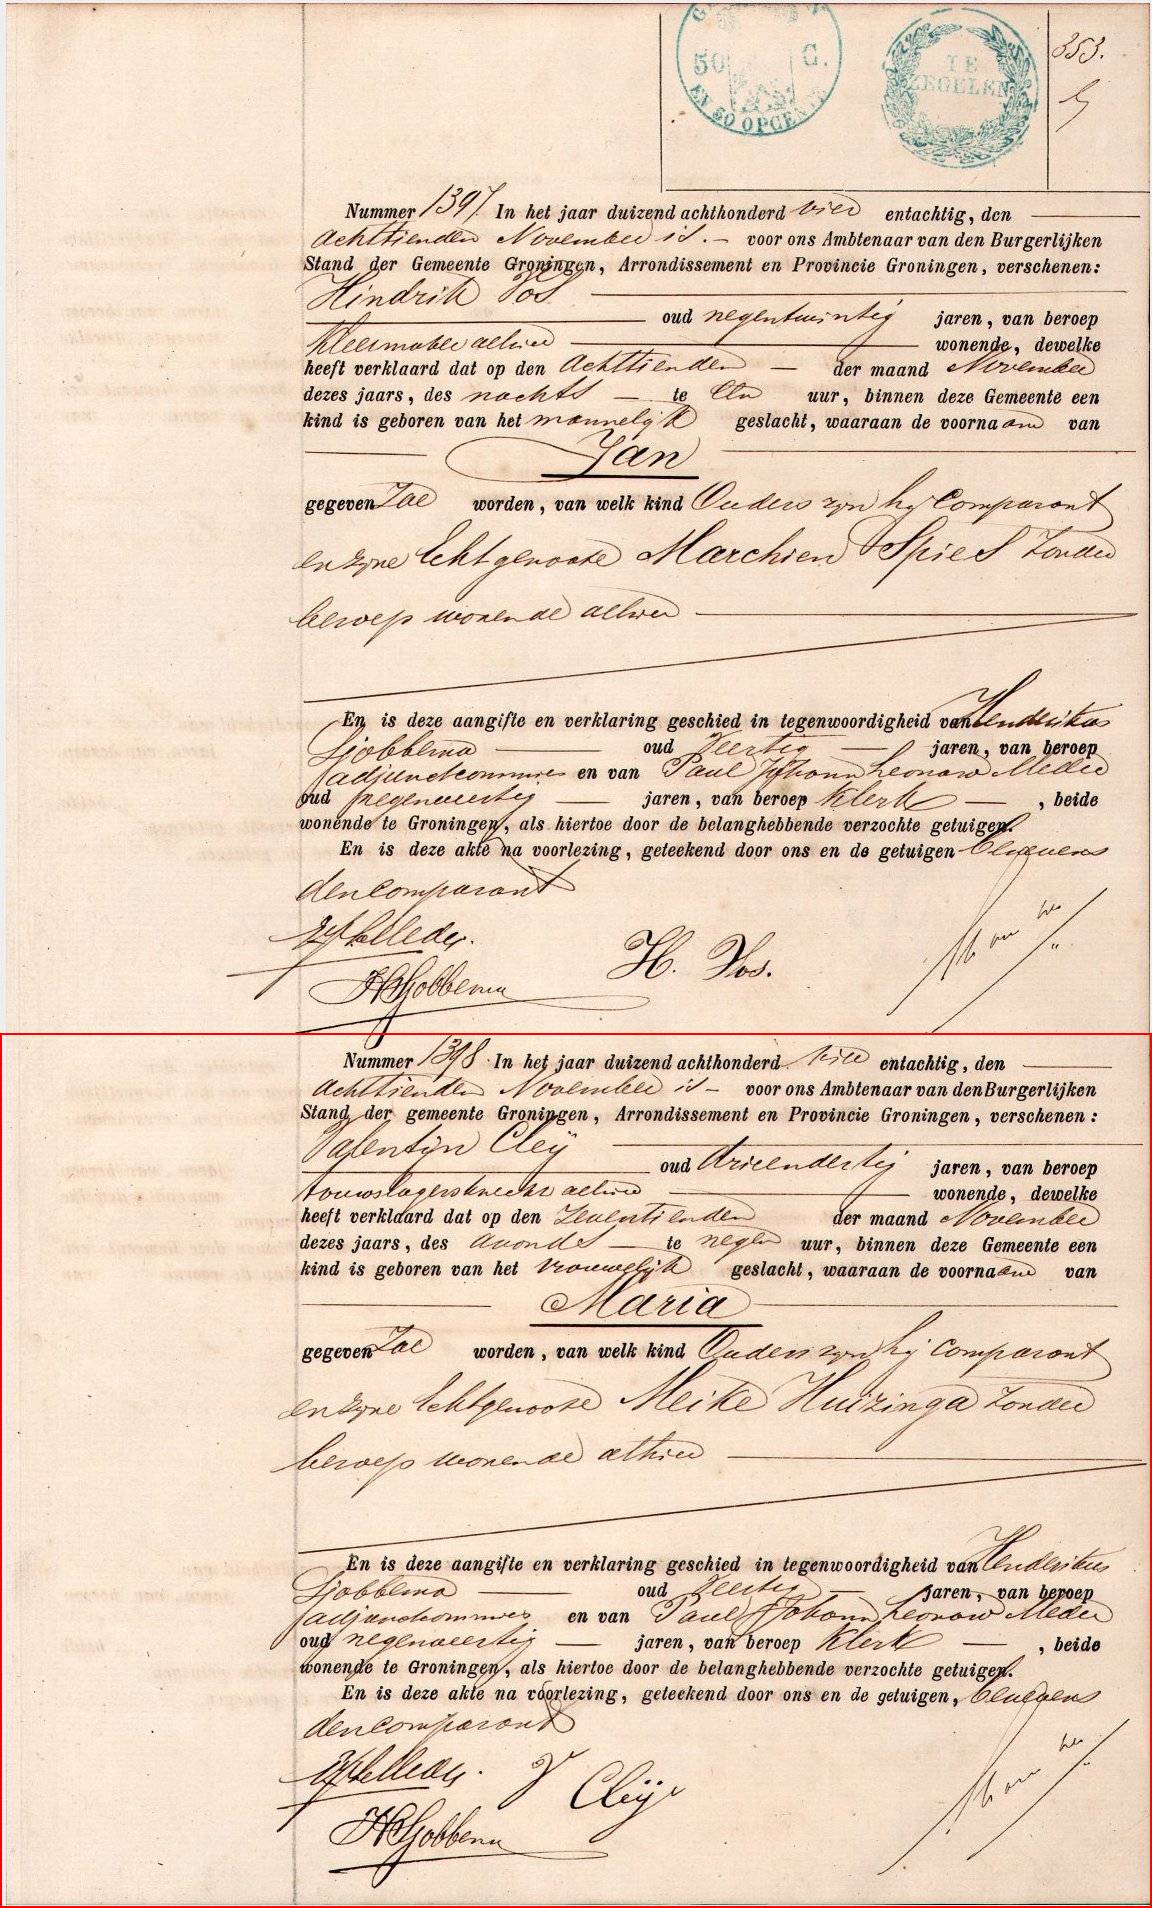 50 G.
EN 50 OPCENTEN
TE
ZEGELEN
353.
Nummer 1397. In het jaar duizend achthonderd vier entachtig, den
Achttienden November is. - voor ons Ambtenaar van den Burgerlijken
Stand der Gemeente Groningen, Arrondissement en Provincie Groningen, verschenen:
Hindrik Vos
oud negentwintig jaren, van beroep
Kleermaker alhier wonende, dewelke
heeft verklaard dat op den Achttienden der maand November
dezes jaars, des nachts te Een uur, binnen deze Gemeente een
kind is geboren van het mannelijk geslacht, waaraan de voornaam van
Jan
gegeven Zal worden, van welk kind Ouders zijn hij Comparant
en zijne Echtgenoote Marchien Spies Zonder
beroep wonende alhier
En is deze aangifte en verklaring geschied in tegenwoordigheid van Hendrikus
Sjobbema oud Veertig jaren, van beroep
adjunctcommies en van Paul Johann Leonard Meder
oud negenveertig jaren, van beroep Klerk, beide
wonende te Groningen, als hiertoe door de belanghebbende verzochte getuigen.
En is deze akte na voorlezing, geteekend door ons en de getuigen benevens
den comparant
PJLMeder.
H. Vos.
HSjobbema
Nummer 1398. In het jaar duizend achthonderd vier entachtig, den
Achttienden November is - voor ons Ambtenaar van den Burgerlijken
Stand der gemeente Groningen, Arrondissement en Provincie Groningen, verschenen:
Valentijn Cleij
oud drieendertig jaren, van beroep
touwslagersknecht alhier wonende, dewelke
heeft verklaard dat op den Zeventienden der maand November
dezes jaars, des avonds te negen uur, binnen deze Gemeente een
kind is geboren van het vrouwelijk geslacht, waaraan de voornaam van
Maria
gegeven Zal worden, van welk kind Ouders zijn hij Comparant
en zijne Echtgenoote Meike Huizinga Zonder
beroep wonende alhier
En is deze aangifte en verklaring geschied in tegenwoordigheid van Hendrikus
Sjobbema oud Veertig jaren, van beroep
adjunctcommies en van Paul Johann Leonard Meder
oud negenveertig jaren, van beroep Klerk, beide
wonende te Groningen, als hiertoe door de belanghebbende verzochte getuigen.
En is deze akte na voorlezing, geteekend door ons en de getuigen, benevens
den comparant
PJLMeder. V Cleij
HSjobbema